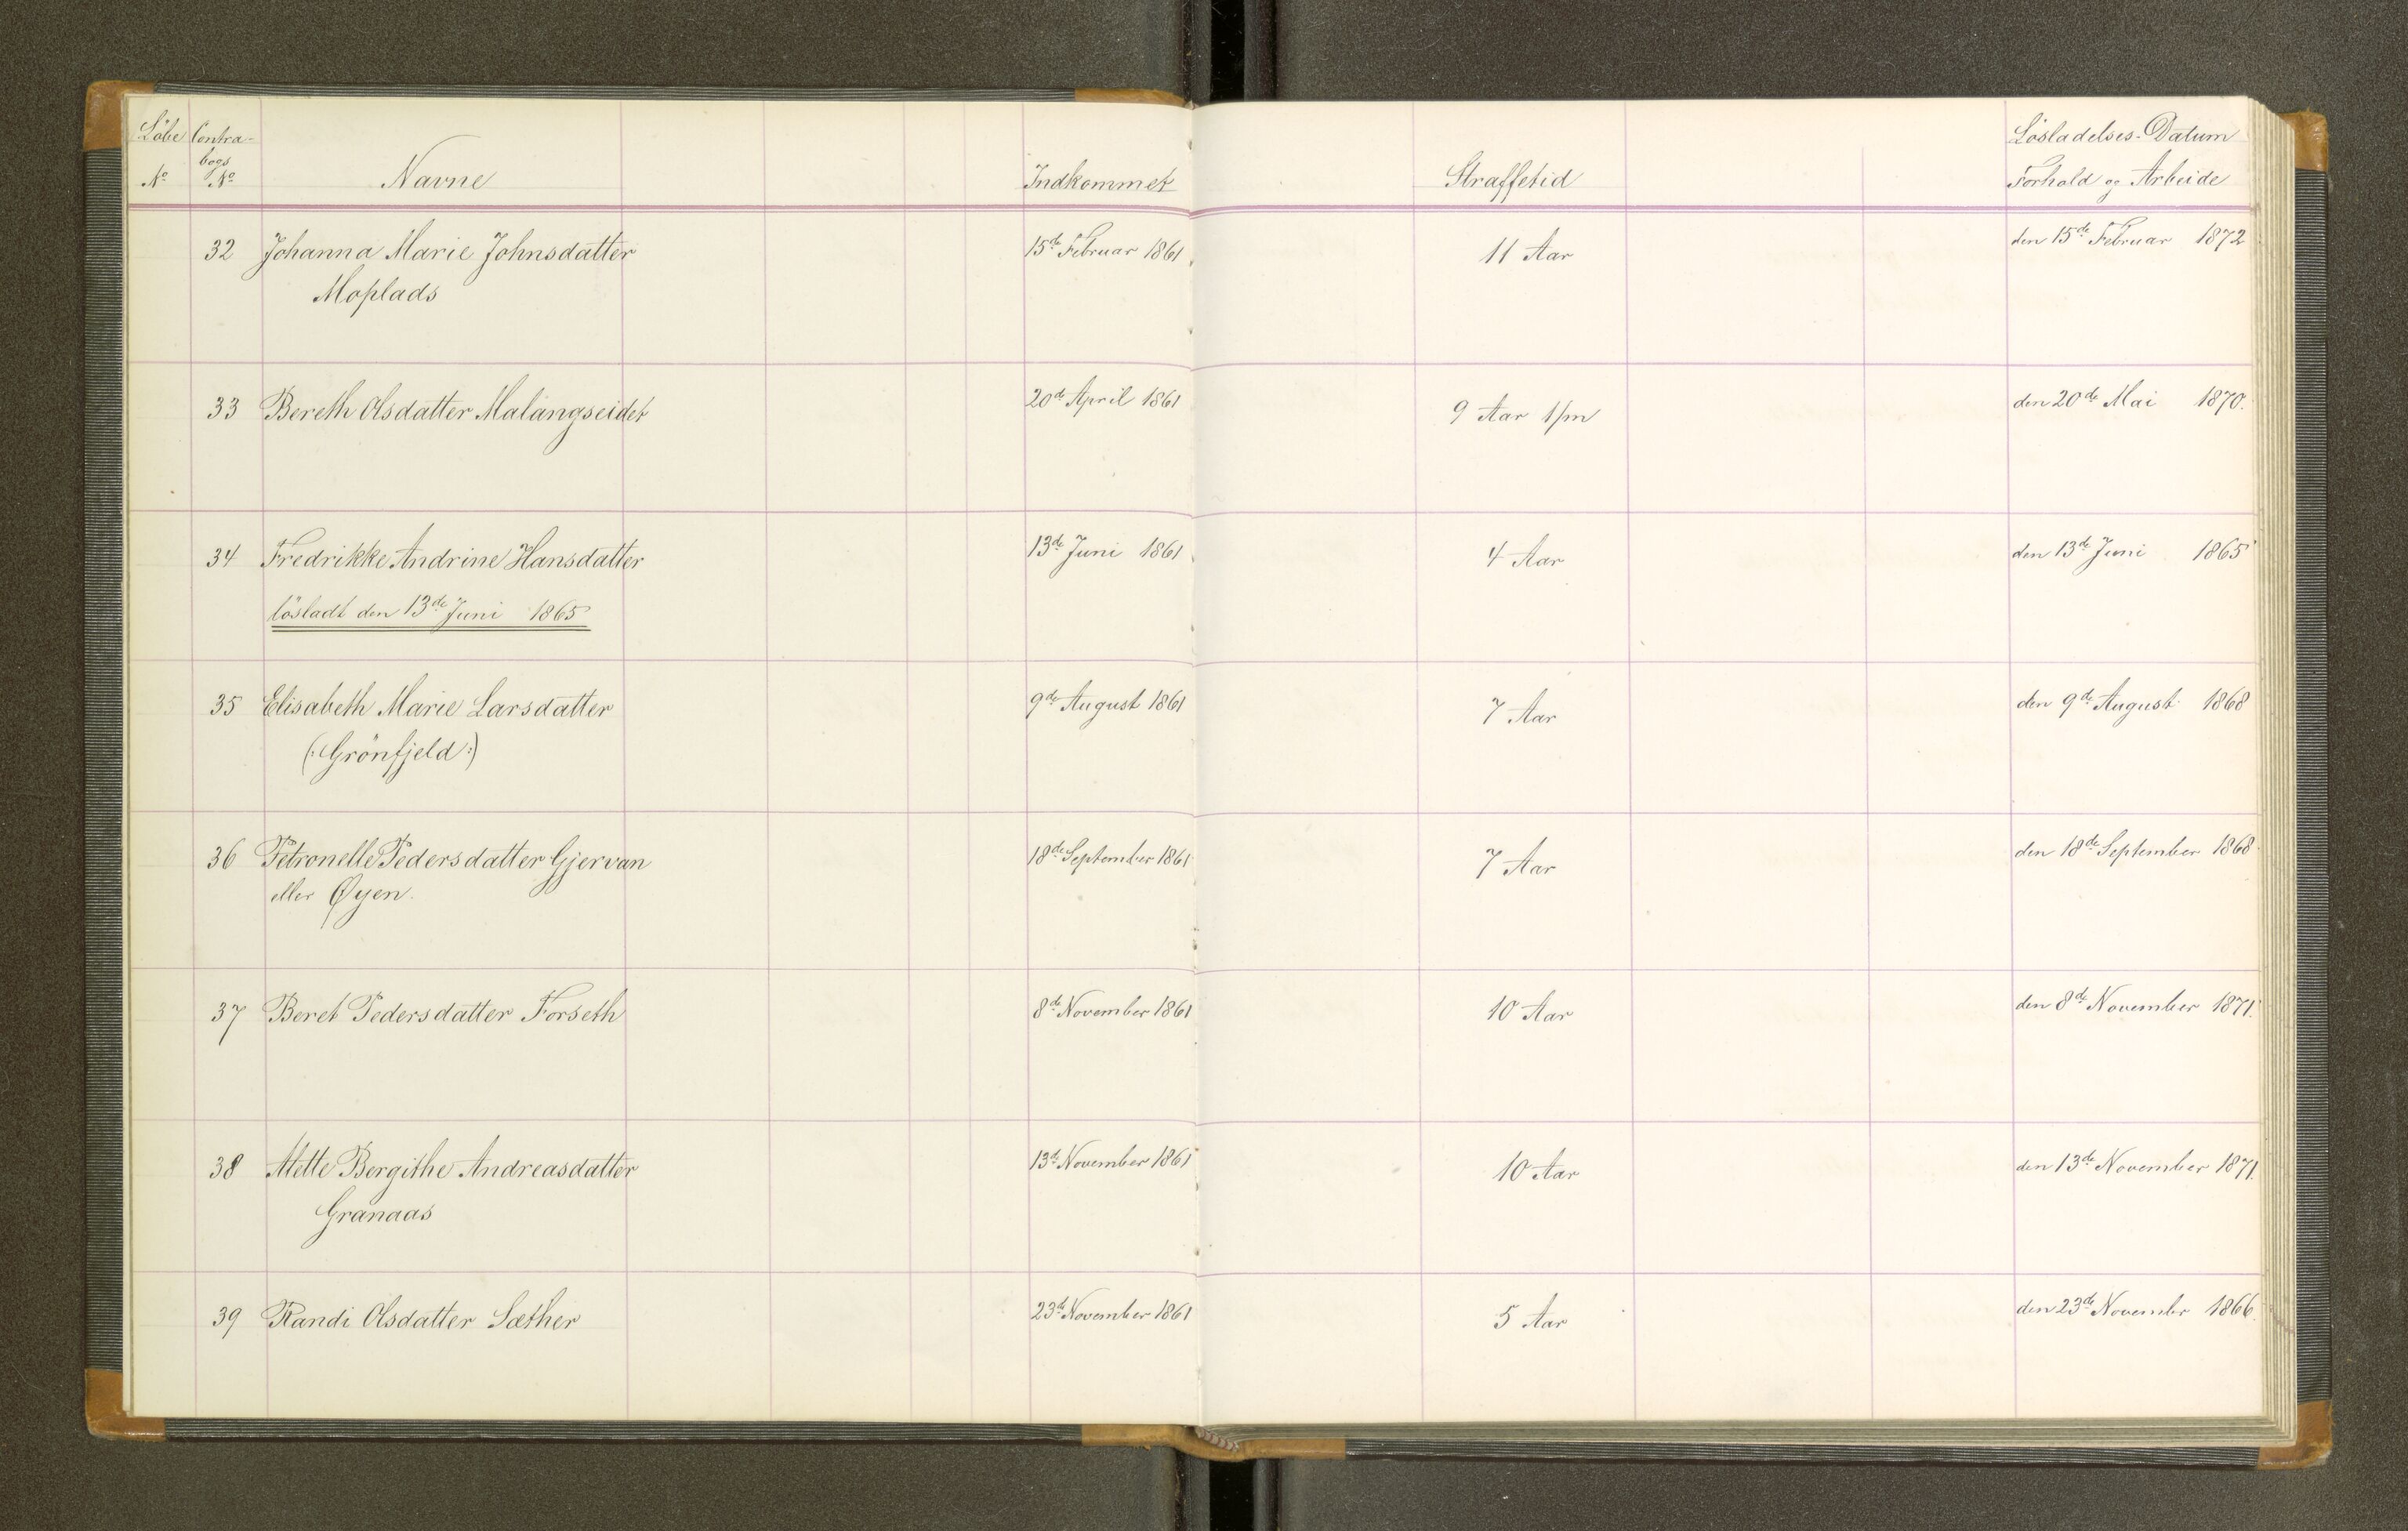 Löbe Contra- Lösladelses-Datum
bogs
No No Navne Indkommet Straffetid Forhold og Arbeide
32 Johanna Marie Johnsdatter 15de Februar 1861 11 Aar den 15de Februar 1872
Moplads
33 Bereth Olsdatter Malangseidet 20de April 1861 9 Aar 1/m den 20de Mai 1870.
34 Fredrikke Andrine Hansdatter 13de Juni 1861 4 Aar den 13de Juni 1865
lösladt den 13de Juni 1865
35 Elisabeth Marie Larsdatter 9de August 1861 7 Aar den 9de August 1868
(: Grönfjeld :)
36 Petronelle Pedersdatter Gjervan 18de September 1861 7 Aar den 18de September 1868
eller Øyen.
37 Beret Pedersdatter Forseth 8de November 1861 10 Aar den 8de November 1871.
38 Mette Bergithe Andreasdatter 13de November 1861 10 Aar den 13de November 1871.
Granaas
39 Randi Olsdatter Sæther 23de November 1861 5 Aar den 23de Novembr 1866.